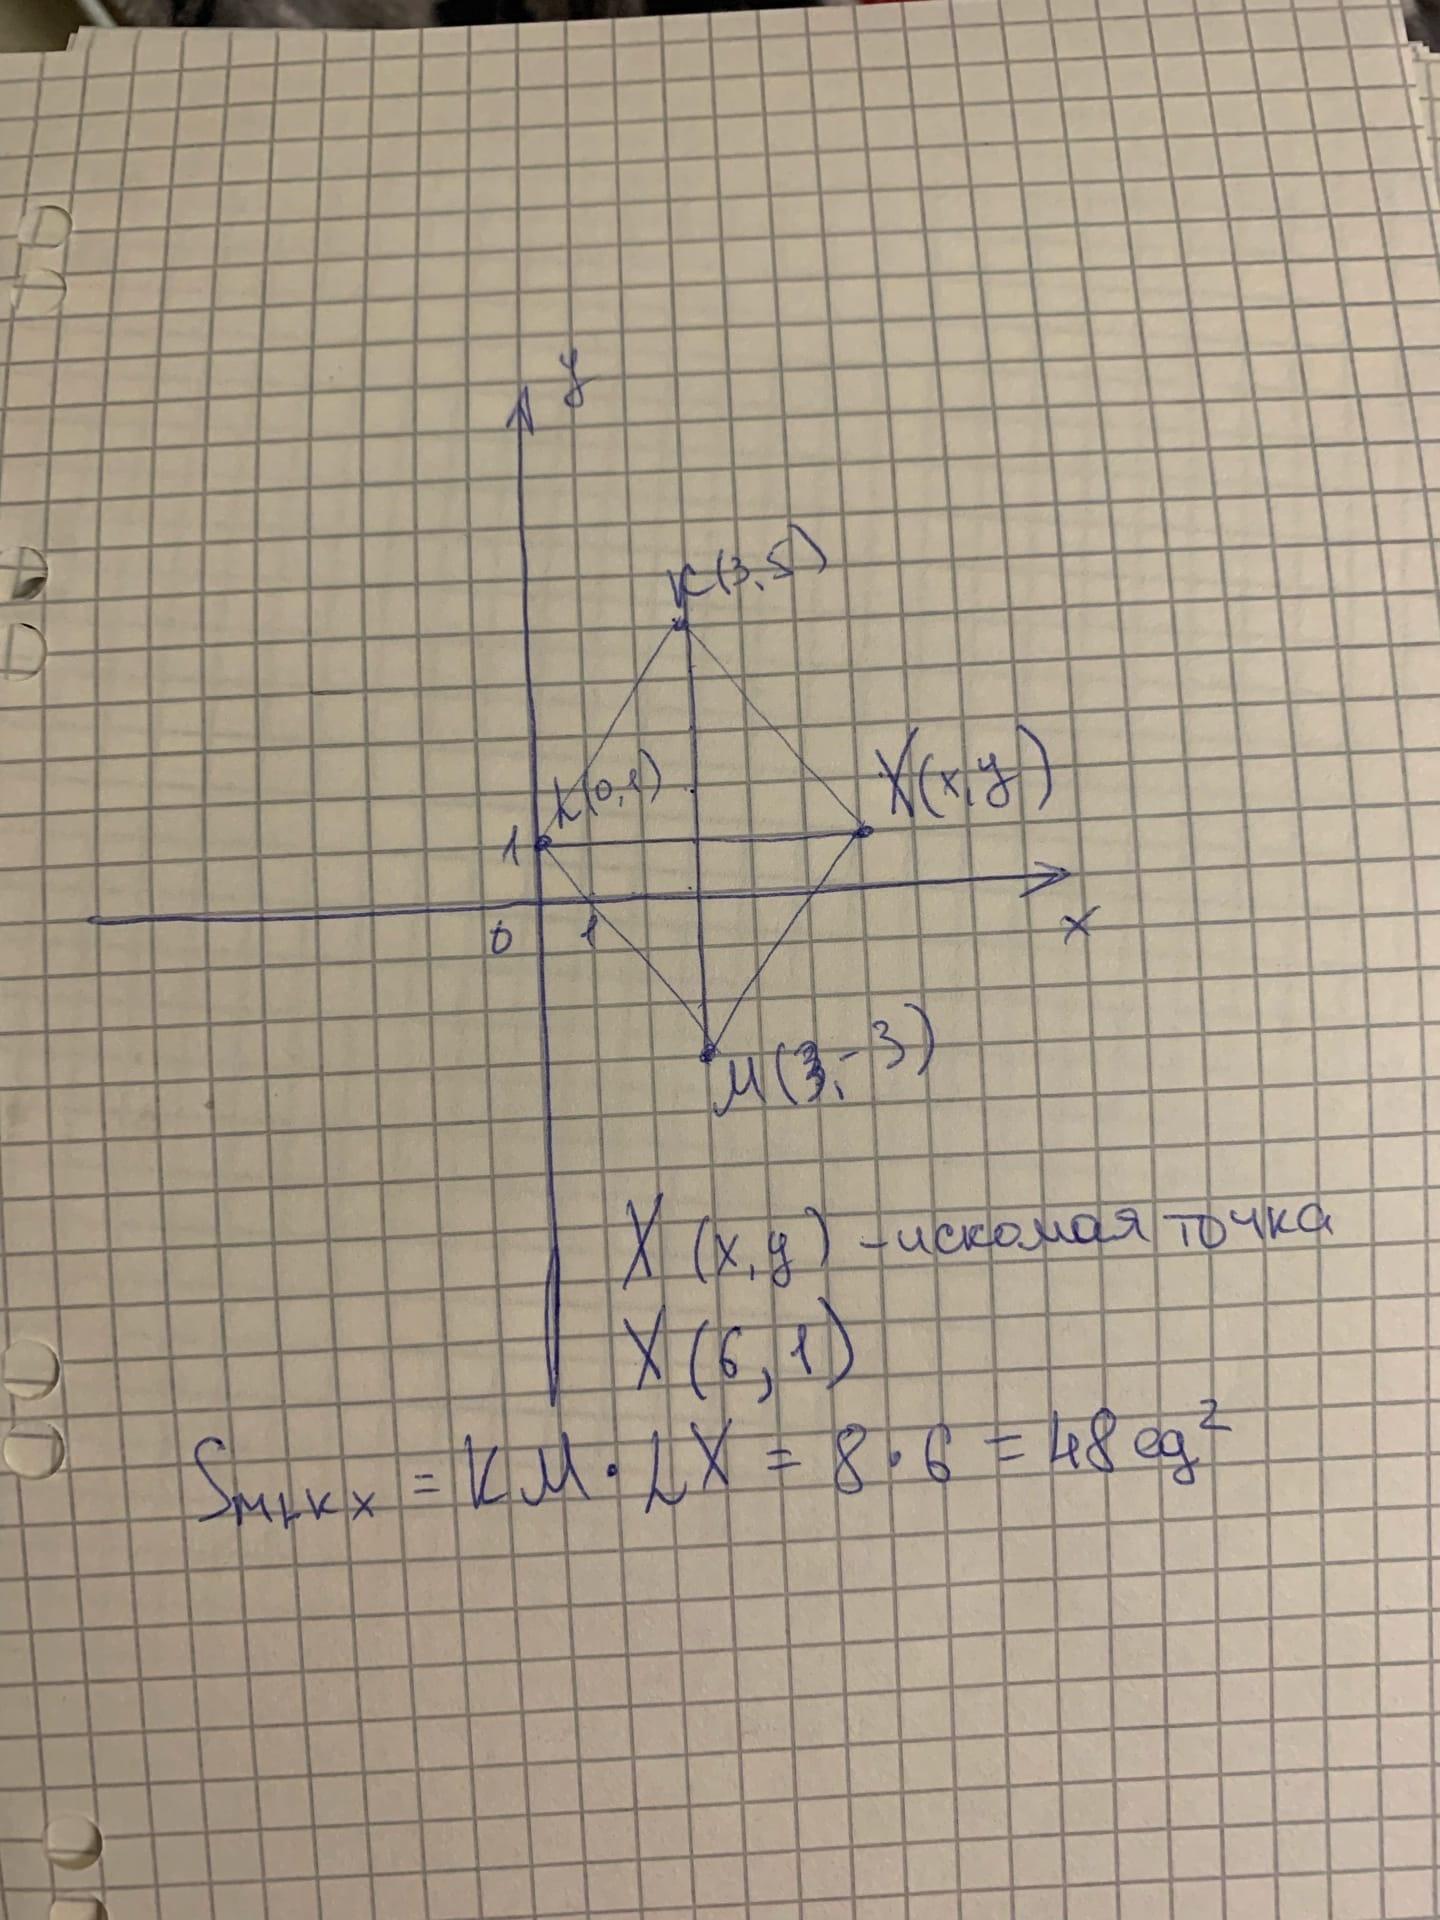 y
K(3,5)
L(0,1)
X(x,y)
1
0
1
x
M(3,-3)
X (x,y) - искомая точка
X (6,1)
SMLKX = KM · LX = 8 · 6 = 48 ед²